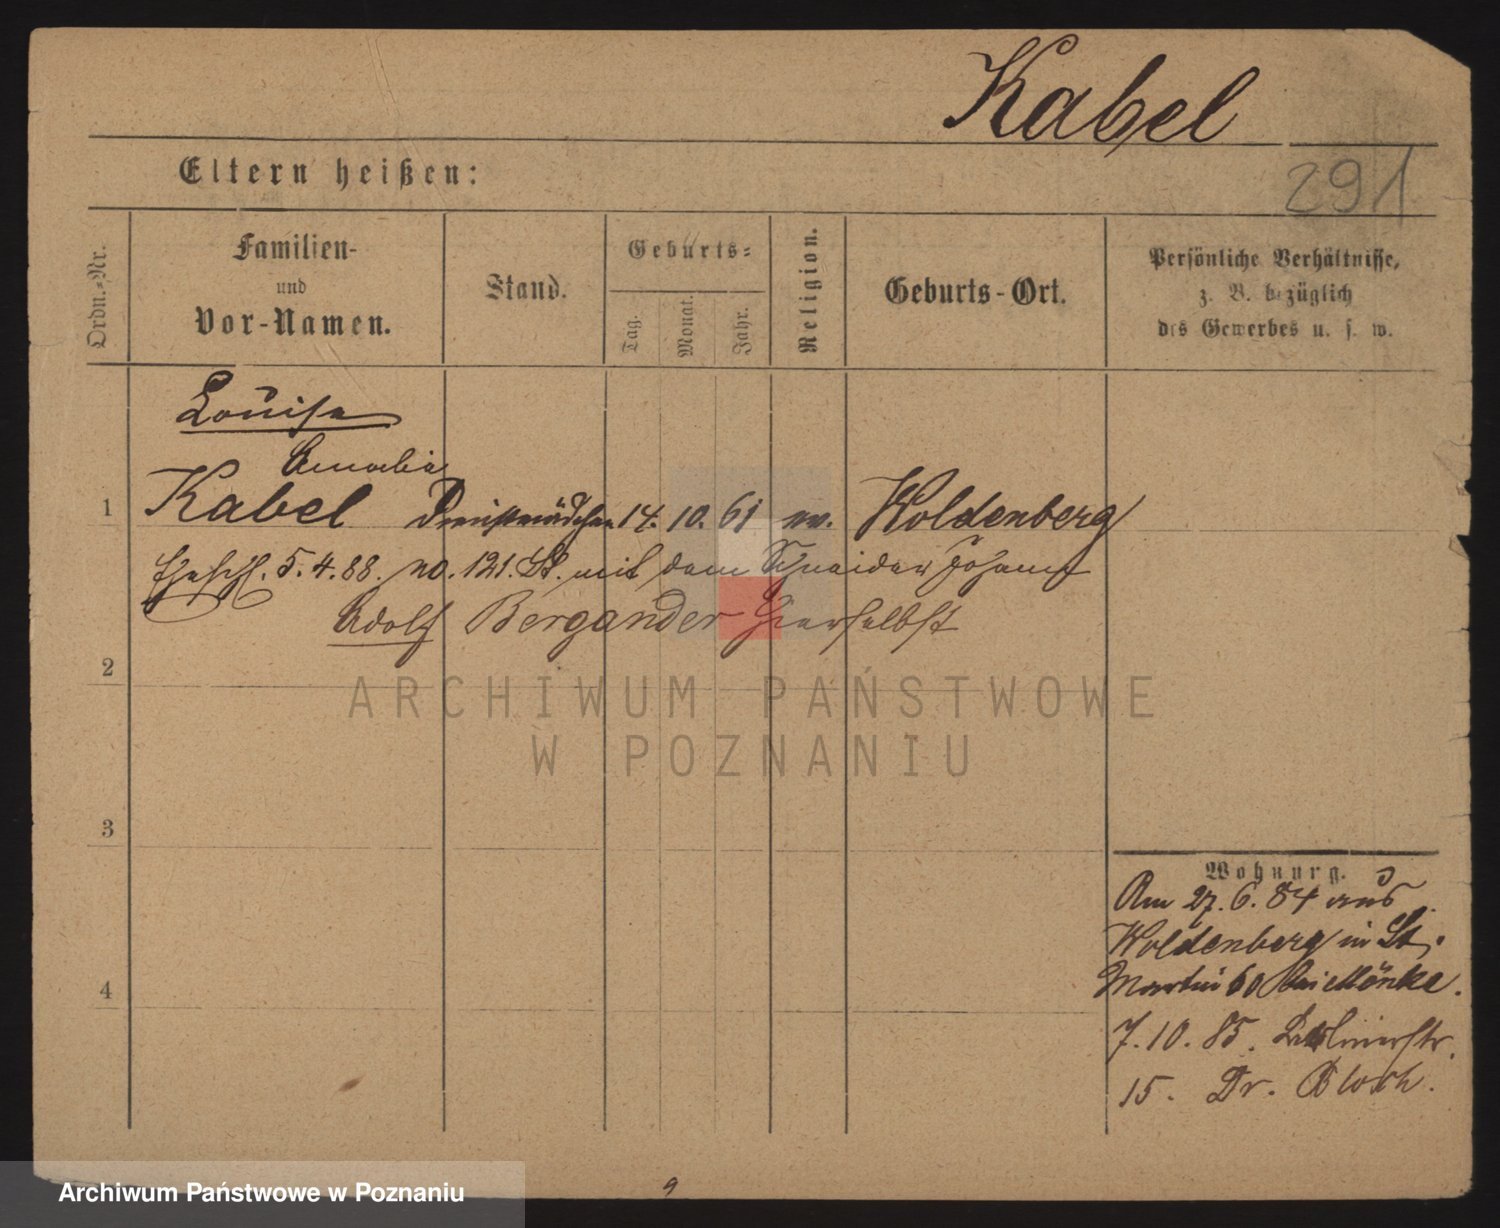 Kabel
291
Eltern heißen:
Ordn.-Nr.
Familien-
und
Vor-Namen.
Stand.
Geburts-
Tag.
Monat.
Jahr.
Religion.
Geburts-Ort.
Persönliche Verhältnisse,
z. B. bezüglich
des Gewerbes u. s. w.
Louise
Amalie
1 Kabel Dienstmädchen 14. 10. 61 ev. Woldenberg
5. 4. 88. no. 121. St. mit dem Schneider Johann
Adolf Bergander hierselbst
2
ARCHIWUM PAŃSTWOWE
W POZNANIU
3
4
Wohnung.
Am 27. 6. 84 aus
Woldenberg in St.
Martin 60 bei Mönke.
7. 10. 85. Berlinerstr.
15. Dr. Bloch.
9
Archiwum Państwowe w Poznaniu